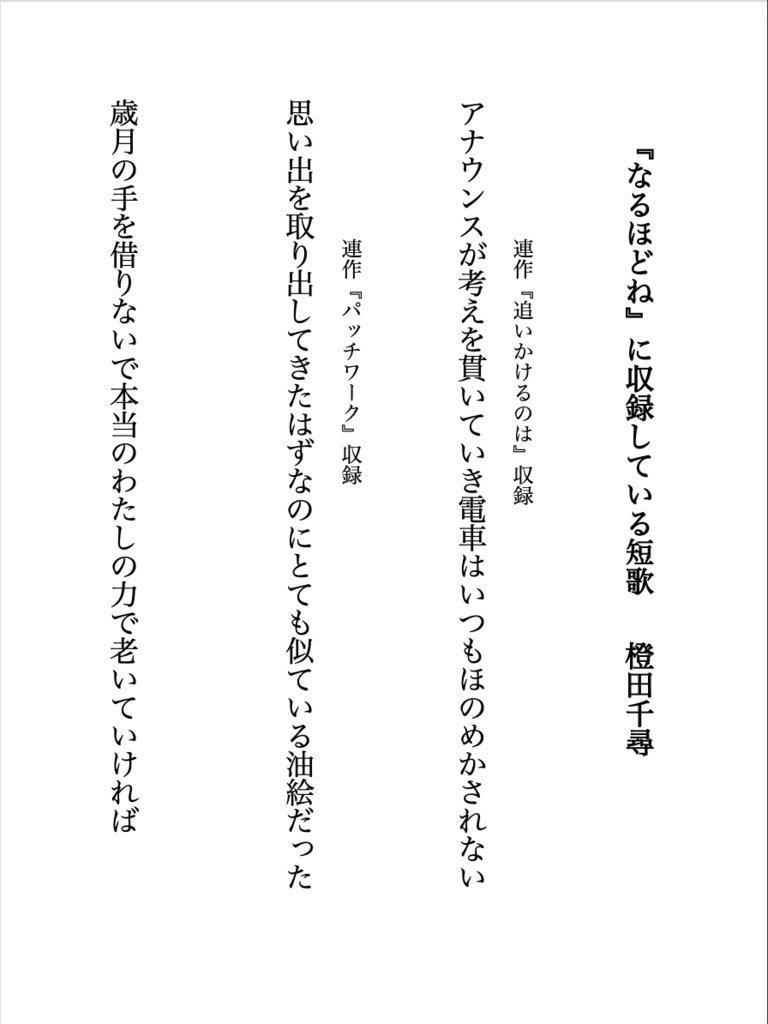 『なるほどね』に収録している短歌　橙田千尋
連作『追いかけるのは』収録
アナウンスが考えを貫いていき電車はいつもほのめかされない
連作『パッチワーク』収録
思い出を取り出してきたはずなのにとても似ている油絵だった
歳月の手を借りないで本当のわたしの力で老いていければ